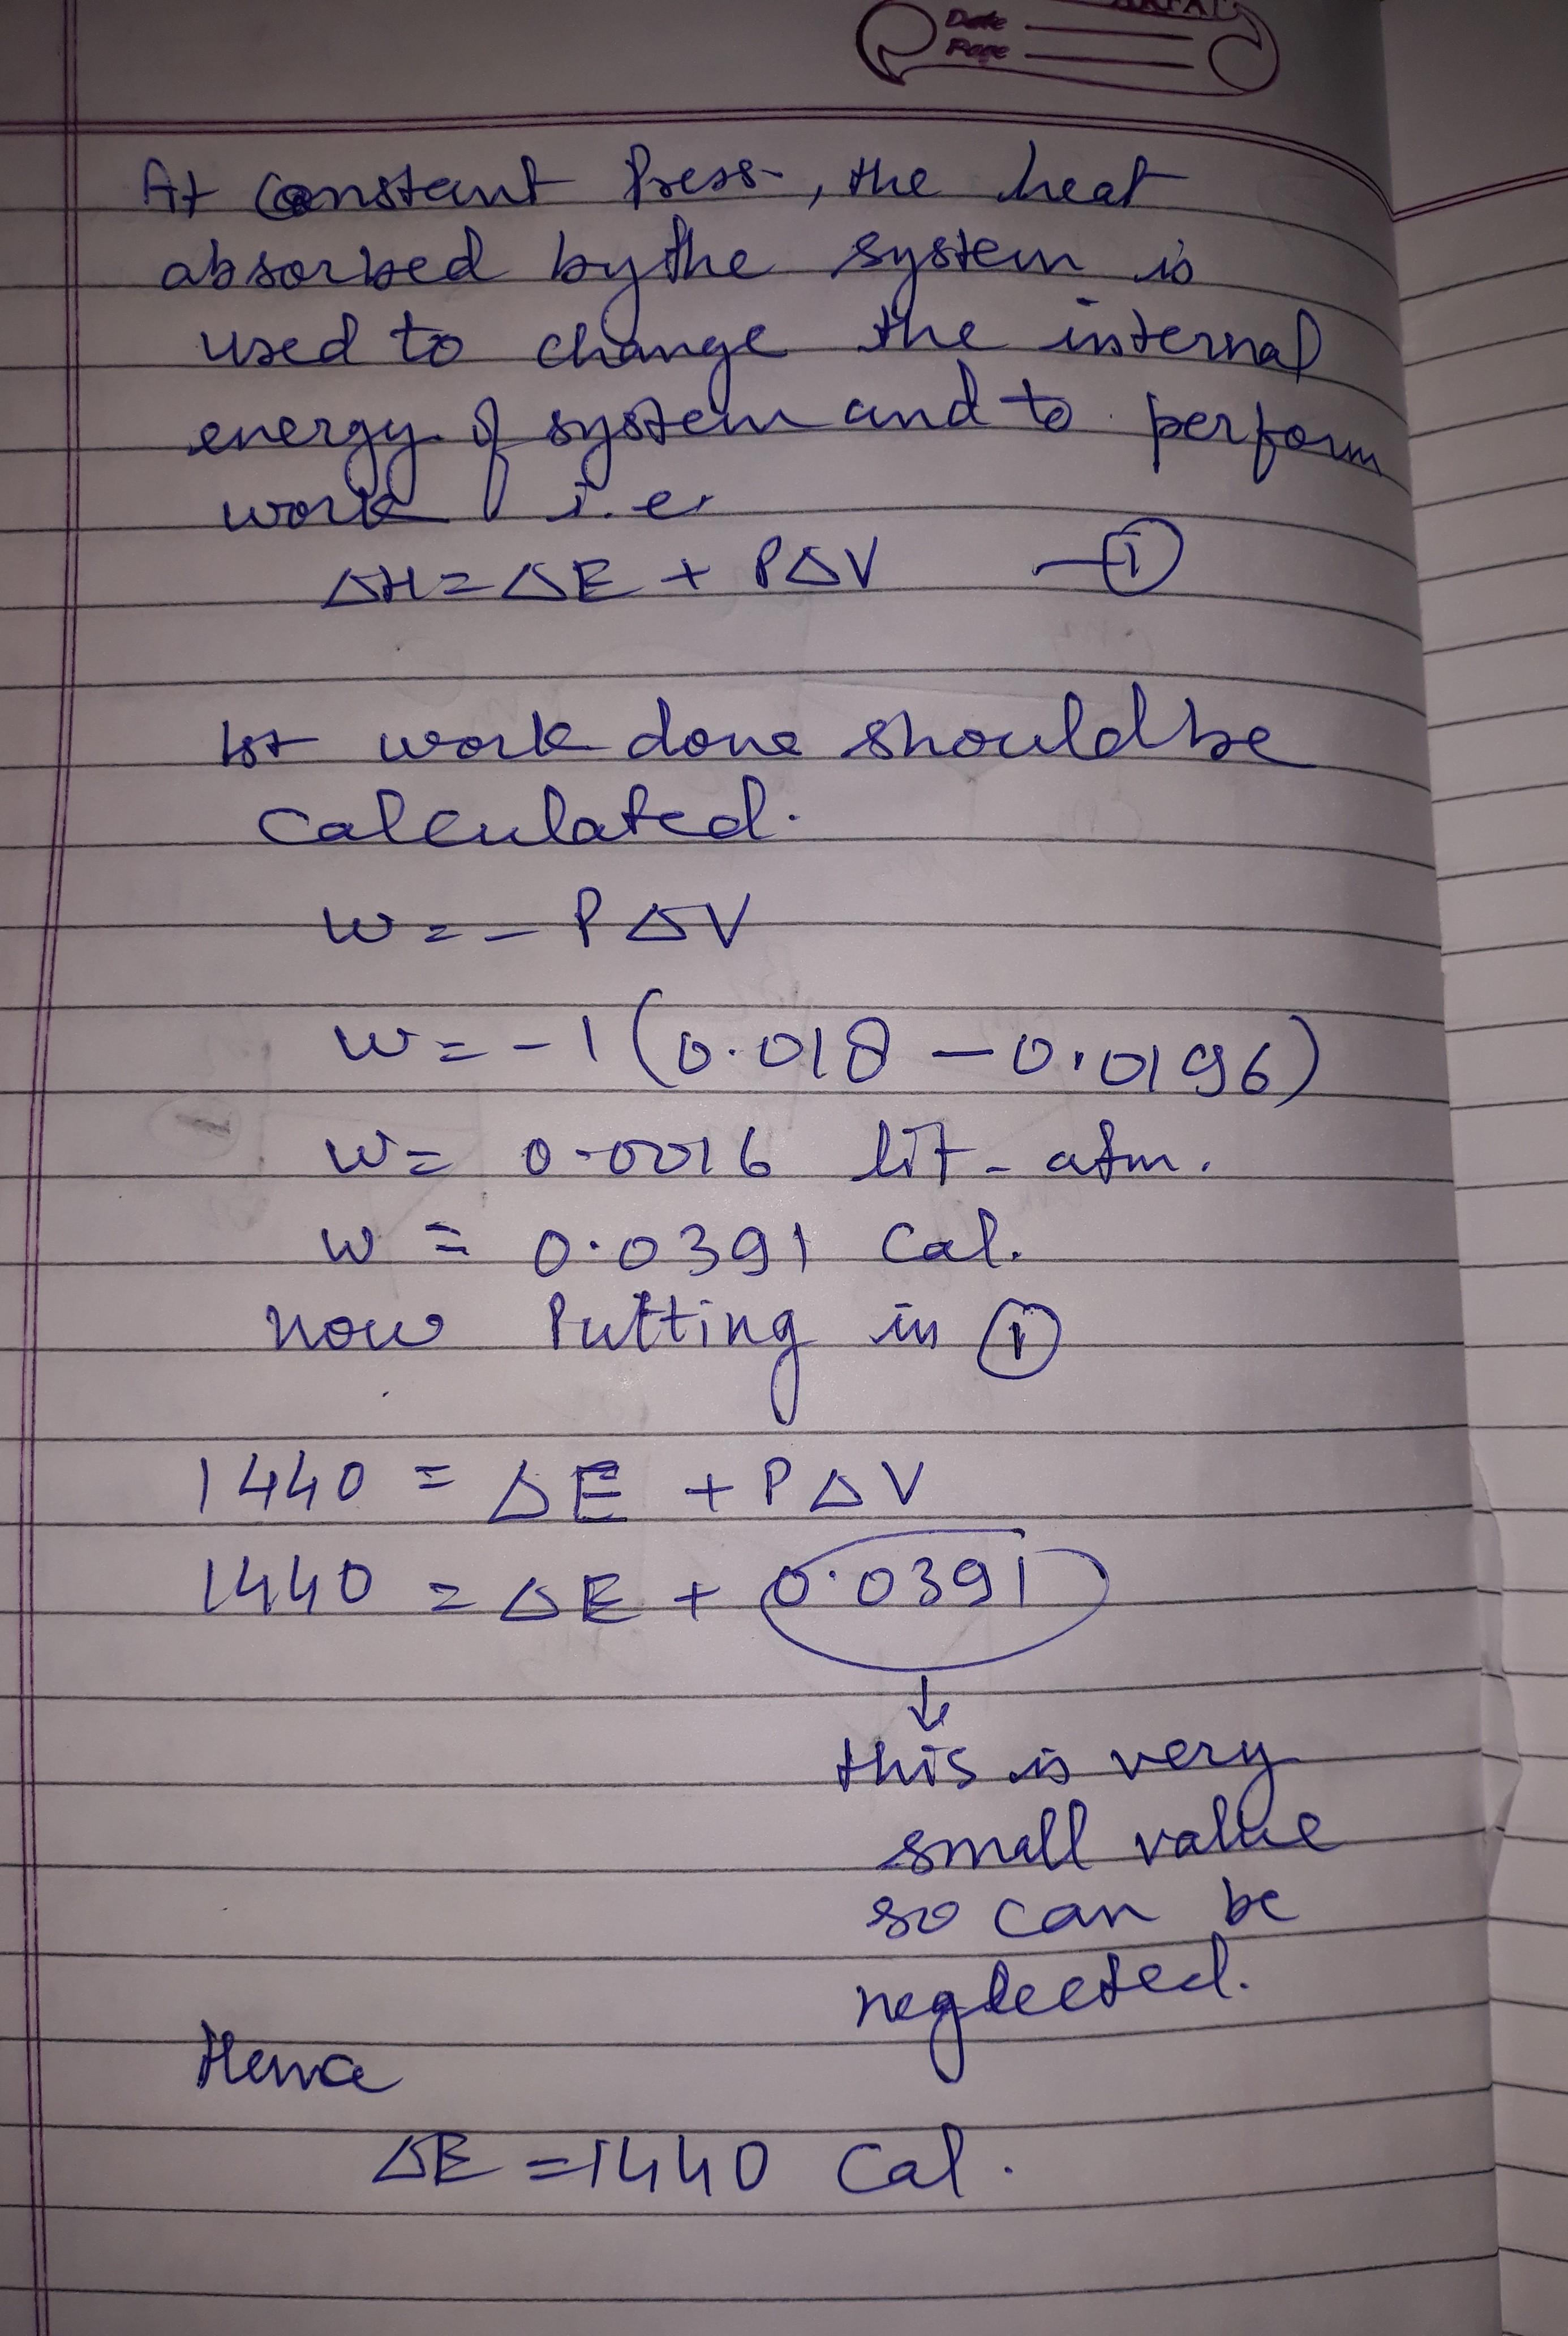 Date
Page
At Constant Press, the heat
absorbed by the system is
used to change the internal
energy of system and to perform
work i.e.
ΔH = ΔE + PΔV —①
1st work done should be
Calculated.
W = - PΔV
W = -1 (0.018 - 0.0196)
W = 0.0016 lit-atm.
W = 0.0391 Cal.
now Putting in ①
1440 = ΔE + PΔV
1440 = ΔE + 0.0391
↓
this is very
small value
so can be
neglected.
Hence
ΔE = 1440 Cal.